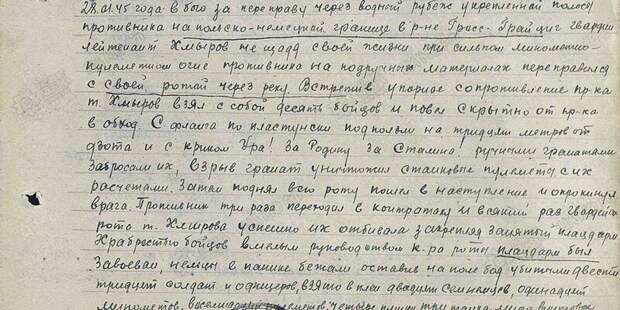 28.01.45 года в бою за переправу через водный рубеж укрепленной полосы
противника на польско-немецкой границе в р-не Гросс-Грайциг гвардии
лейтенант Хмыров не щадя своей жизни при сильном минометно-
пулеметном огне противника на подручных материалах переправился
с своей ротой через реку. Встретив упорное сопротивление пр-ка
т. Хмыров взял с собой десять бойцов и повел скрытно от пр-ка
в обход. С фланга по пластунски подползли на тридцать метров от
дзота и с криком Ура! За Родину за Сталина! ручными гранатами
забросали их, взрыв гранат уничтожил станковые пулеметы с их
расчетами. Затем поднял всю роту пошел в наступление и опрокинул
врага. Противник три раза переходил в контратаку и всякий раз гвардейск.
рота т. Хмырова успешно их отбивала закрепляя занятый плацдарм
Храбростью бойцов вмелым руководством к-ра роты плацдарм был
завоеван, немцы в панике бежали оставив на поле боя убитыми двести
тридцать солдат и офицеров, взято в плен двадцать семь немцев, одинадцать
минометов, пулеметов, четыре три танка